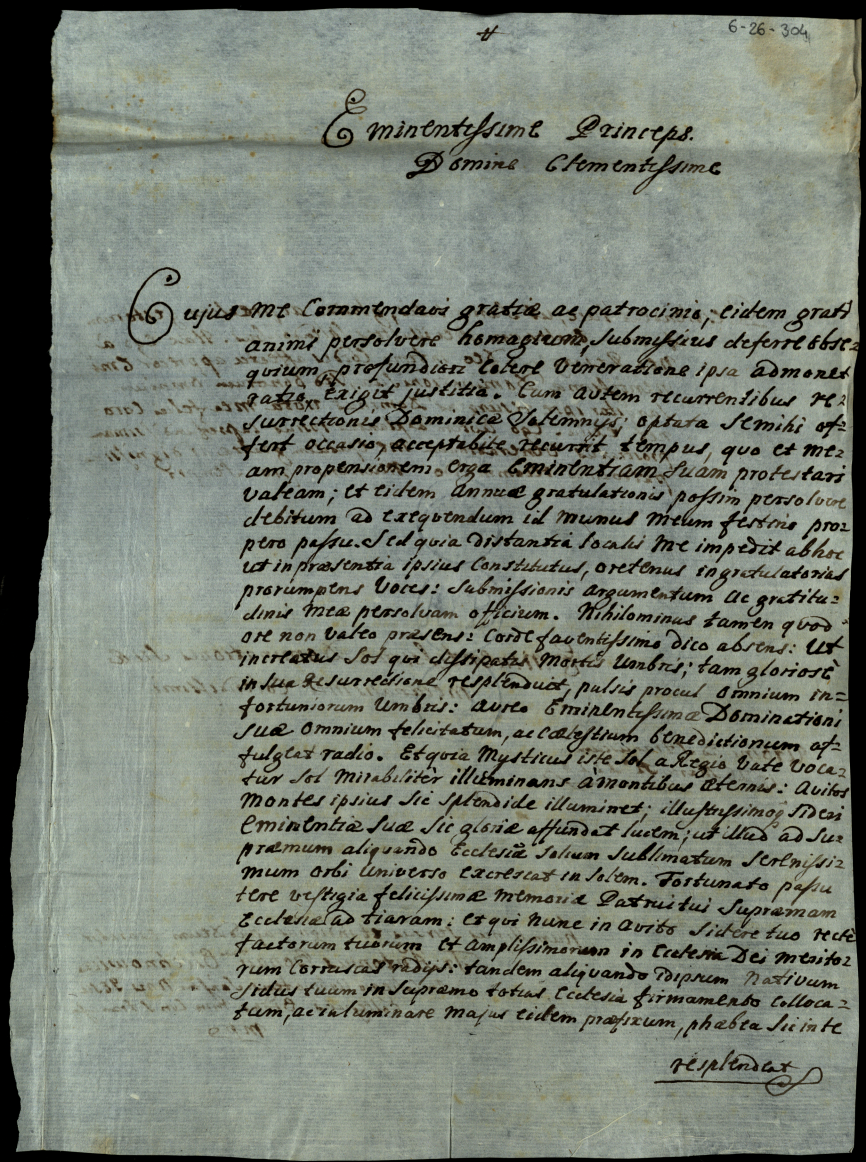 6-26-304
Eminentissime Princeps.
Domine Clementissime
Cujus me Commendavi gratiæ ac patrocinio, eidem grati
animi persolvere homagium, submissius deferre obse=
quium, profundiori colere Veneratione ipsa admonet
ratio, Exigit justitia. Cum autem recurrentibus re=
surrectionis Dominicæ Solemnijs; optata se mihi of=
fert occasio, acceptabile recurrit tempus, quo et me=
am propensionem erga Eminentiam Suam protestari
valeam; et eidem annuæ gratulationis possim persolvere
debitum ad exequendum id munus meum festino pro=
pero passu. Sed quia distantia locali me impedit ab hoc
ut in præsentia ipsius Constitutus, oretenus in gratulatorias
prorumpens Voces: Submissionis argumentum ac gratitu=
dinis meæ persolvam officium. Nihilominus tamen quod
ore non valeo præsens: Corde faventissimo dico absens: Ut
increatus Sol qui dissipatis mortis Umbris; tam gloriosè
in sua Resurrectione resplenduit, pulsis procul omnium in=
fortuniorum Umbris: aureo Eminentissimæ Dominationi
suæ omnium felicitatum, ac Cælestium benedictionum af=
fulgeat radio. Et quia Mysticus iste Sol a Regio Vate voca=
tur Sol mirabilitèr illuminans à montibus æternis: Avitos
Montes ipsius Sic Splendide illuminet; illustrissimoq Sideri
Eminentiæ Suæ Sic gloriæ affundat lucem; ut illud ad Su=
præmum aliquando Ecclesiæ Solium Sublimatum Serenissi=
mum orbi Universo excrescat in Solem. Fortunato passu
tere vestigia felicissimæ memoriæ Patrui tui Supræmam
Ecclesiæ ad tiaram: et qui nunc in avito Sidere tuo rectè
factorum tuorum et amplissimorum in Ecclesia Dei merito=
rum Corruscas radijs: tandem aliquando idipsum Nativum
Sidus tuum in Supræmo totius Ecclesiæ firmamento Colloca=
tum, ac in luminare Majus eidem præfixum, phæbea Sic in te
resplendeat